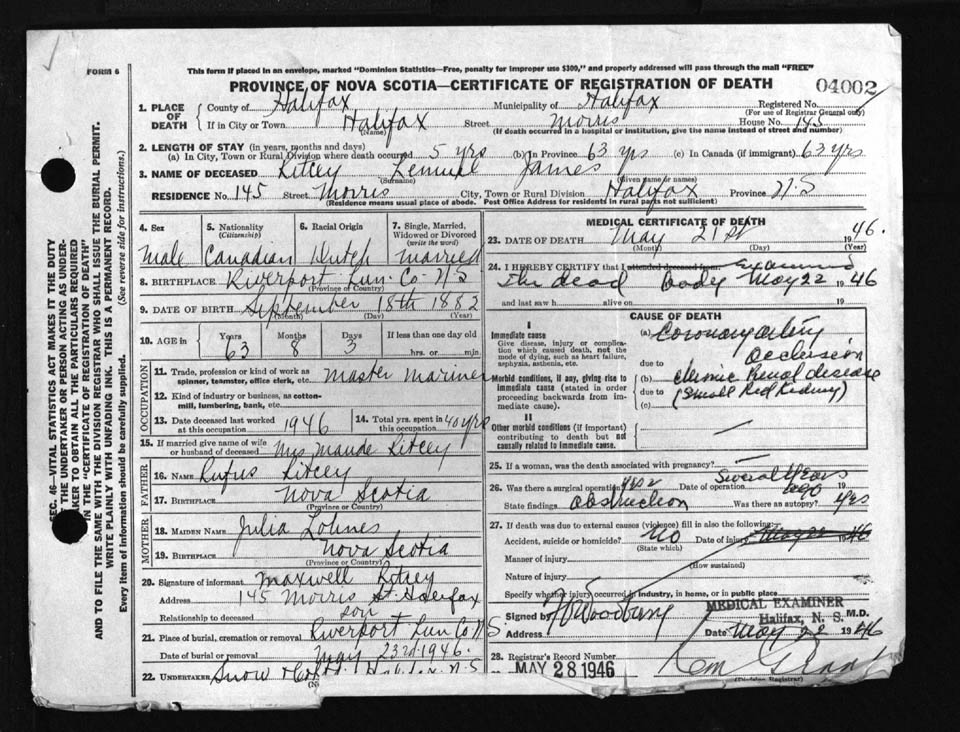 FORM 6
This form if placed in an envelope, marked "Dominion Statistics—Free, penalty for improper use $300," and properly addressed will pass through the mail "FREE"
PROVINCE OF NOVA SCOTIA—CERTIFICATE OF REGISTRATION OF DEATH
04002
1. PLACE OF DEATH
County of Halifax Municipality of Halifax Registered No.
(For use of Registrar General only)
If in City or Town Halifax Street Morris House No. 145
(Name) (If death occurred in a hospital or institution, give the name instead of street and number)
2. LENGTH OF STAY (in years, months and days)
(a) In City, Town or Rural Division where death occurred 5 yrs (b) In Province 63 yrs (c) In Canada (if immigrant) 63 yrs
3. NAME OF DECEASED Litcey Lemuel James
(Surname) (Given name or names)
RESIDENCE No. 145 Street Morris City, Town or Rural Division Halifax Province N.S
(Residence means usual place of abode. Post Office Address for residents in rural parts not sufficient)
SEC. 46—VITAL STATISTICS ACT MAKES IT THE DUTY
OF THE UNDERTAKER OR PERSON ACTING AS UNDER-
TAKER TO OBTAIN ALL THE PARTICULARS REQUIRED
IN THE "CERTIFICATE OF REGISTRATION OF DEATH"
AND TO FILE THE SAME WITH THE DIVISION REGISTRAR WHO SHALL ISSUE THE BURIAL PERMIT.
WRITE PLAINLY WITH UNFADING INK. THIS IS A PERMANENT RECORD.
Every item of information should be carefully supplied. (See reverse side for instructions.)
4. Sex
Male
5. Nationality
(Citizenship)
Canadian
6. Racial Origin
Dutch
7. Single, Married, Widowed or Divorced
(write the word)
Married
8. BIRTHPLACE Riverport Lun. Co N S
(Province or Country)
9. DATE OF BIRTH September 18th 1882
(Month) (Day) (Year)
10. AGE in
Years Months Days If less than one day old
63 8 3 hrs. or min.
OCCUPATION
11. Trade, profession or kind of work as
spinner, teamster, office clerk, etc. Master Mariner
12. Kind of industry or business, as cotton-
mill, lumbering, bank, etc.
13. Date deceased last worked
at this occupation 1946
14. Total yrs. spent in
this occupation 40 yrs
15. If married give name of wife
or husband of deceased Mrs Maude Litcey
FATHER
16. NAME Rufus Litcey
17. BIRTHPLACE Nova Scotia
(Province or Country)
MOTHER
18. MAIDEN NAME Julia Lohnes
19. BIRTHPLACE Nova Scotia
(Province or Country)
20. Signature of informant Maxwell Litcey
Address 145 Morris St. Halifax
Relationship to deceased son
21. Place of burial, cremation or removal Riverport Lun Co N S.
Date of burial or removal May 23rd 1946.
22. UNDERTAKER Snow & Co Halifax N.S
MEDICAL CERTIFICATE OF DEATH
23. DATE OF DEATH May 21st 1946.
(Month) (Day) (Year)
24. I HEREBY CERTIFY that I attended deceased from examined
the dead body May 22 1946
and last saw h alive on 19
CAUSE OF DEATH
I
Immediate cause
Give disease, injury or complica-
tion which caused death, not the
mode of dying, such as heart failure,
asphyxia, asthenia, etc.
(a) Coronary artery
Occlusion
due to
Morbid conditions, if any, giving rise to
immediate cause (stated in order
proceeding backwards from im-
mediate cause).
(b) chronic Renal disease
due to (Small Red Kidney)
(c)
II
Other morbid conditions (if important)
contributing to death but not
causally related to immediate cause.
25. If a woman, was the death associated with pregnancy?
26. Was there a surgical operation? yes Date of operation Several years ago
State findings obstruction Was there an autopsy? yes
27. If death was due to external causes (violence) fill in also the following:
Accident, suicide or homicide? No Date of injury May 22 1946
(State which)
Manner of injury
(How sustained)
Nature of injury
Specify whether injury occurred in industry, in home, or in public place
Signed by Woodbury M.D.
MEDICAL EXAMINER
Halifax, N. S.
Address Date May 22 1946
28. Registrar's Record Number
MAY 28 1946
(Division Registrar)